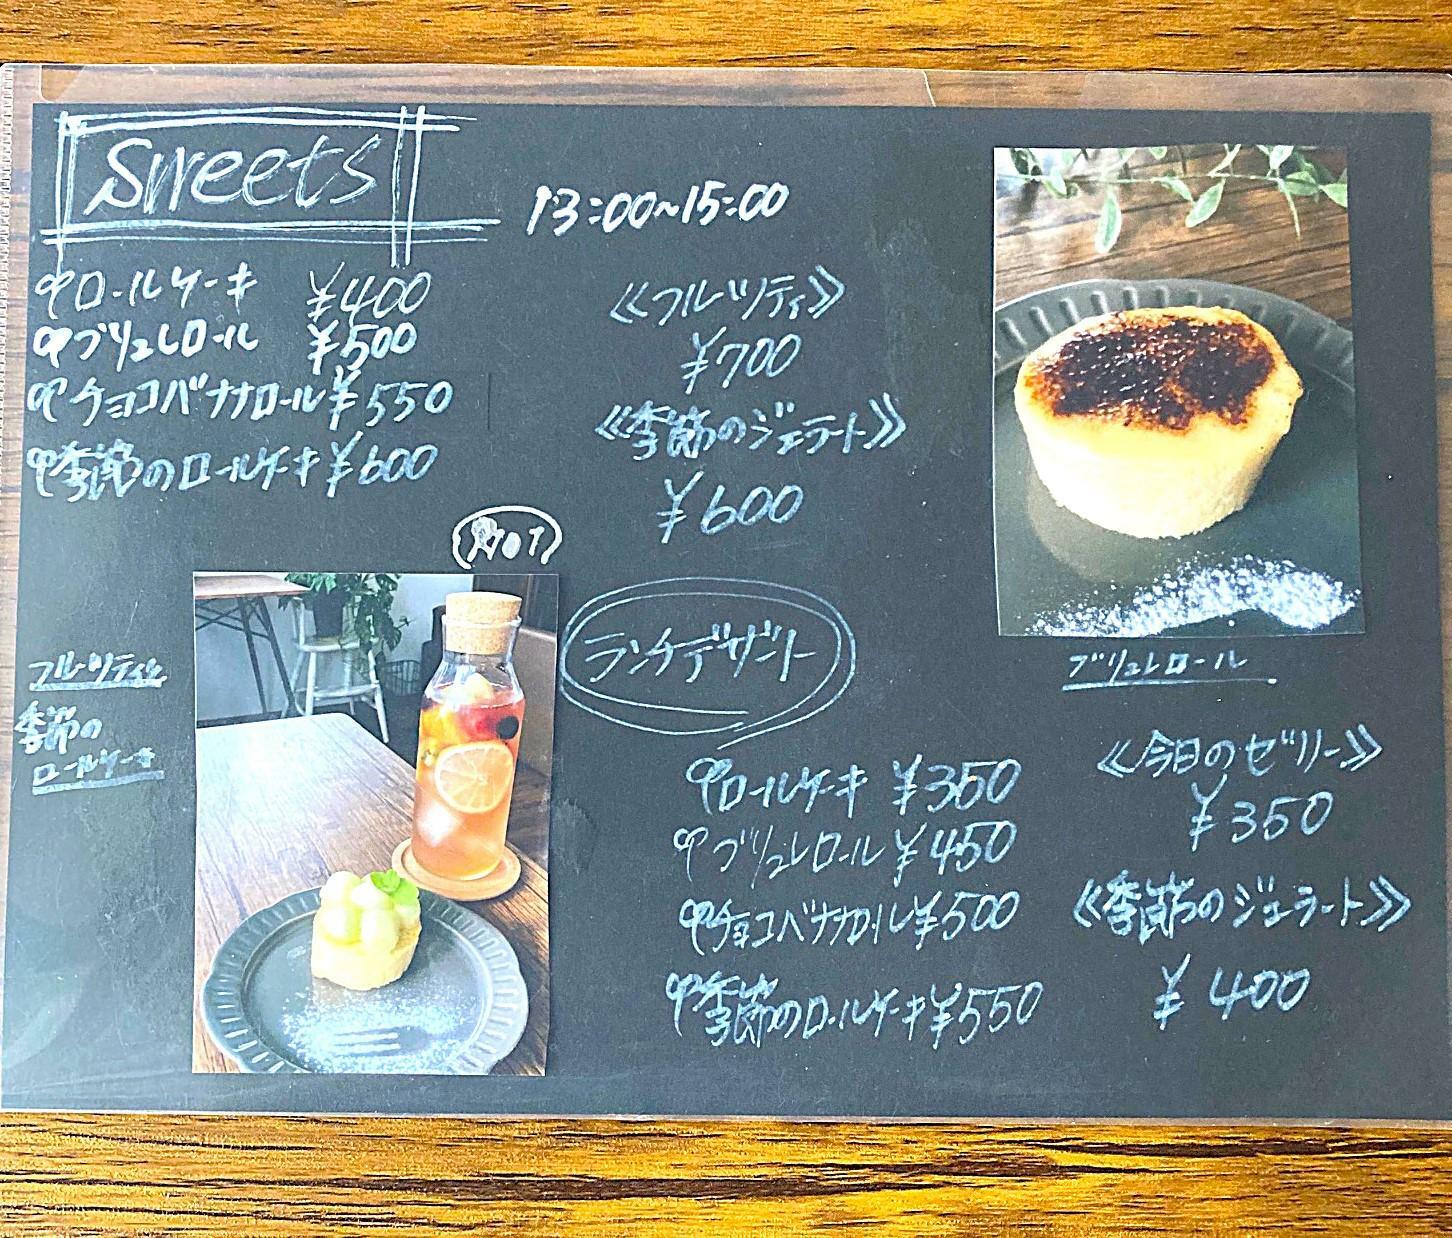 Sweets
13:00~15:00
ロールケーキ ¥400
ブリュレロール ¥500
チョコバナナロール ¥550
季節のロールケーキ ¥600
《フルーツティ》
¥700
《季節のジェラート》
¥600
フルーツティ
季節の
ロールケーキ
ブリュレロール
ランチデザート
ロールケーキ ¥350
ブリュレロール ¥450
チョコバナナロール ¥500
季節のロールケーキ ¥550
《今日のゼリー》
¥350
《季節のジェラート》
¥400